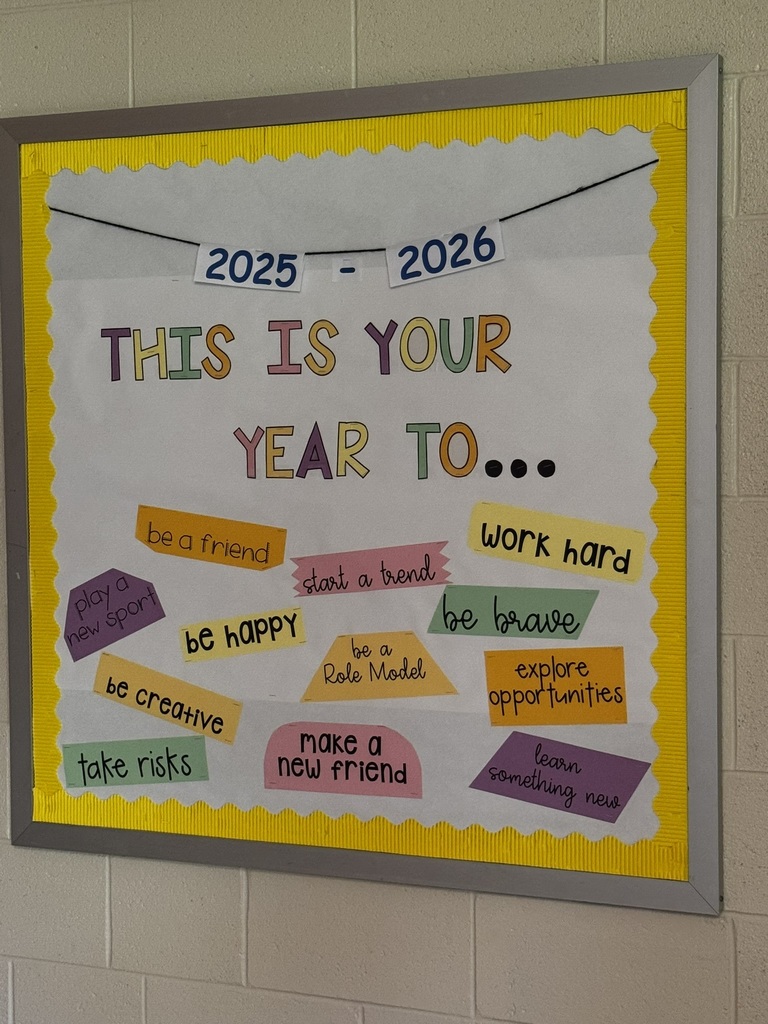 2025 - 2026
THIS IS YOUR
YEAR TO...
be a friend
work hard
start a trend
play a
new sport
be happy
be brave
be a
Role Model
explore
opportunities
be creative
take risks
make a
new friend
learn
something new